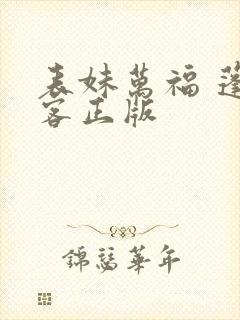 表妹萬福 蓬
客正版
錦瑟華年